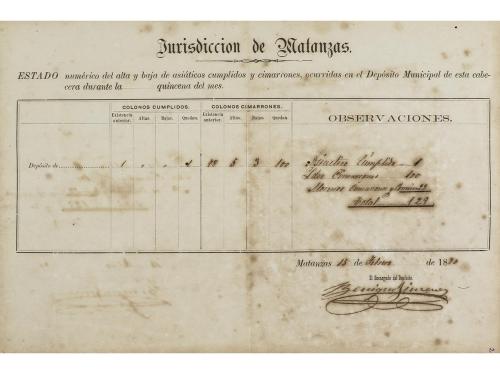 Jurisdiccion de Matanzas.
ESTADO numérico del alta y baja de asiáticos cumplidos y cimarrones, ocurridas en el Depósito Municipal de esta cabe-
cera durante la quincena del mes.
COLONOS CUMPLIDOS. COLONOS CIMARRONES. OBSERVACIONES.
Existencia anterior. Altas. Bajas. Quedan. Existencia anterior. Altas. Bajas. Quedan
Depósito de 1 " " 1 5 3 100
Asiático Cumplido 1
Cimarrones 100
Cimarrones y
Total 129
Matanzas 15 de Febrero de 1880
El Encargado del Depósito.
Benigno Jimenez